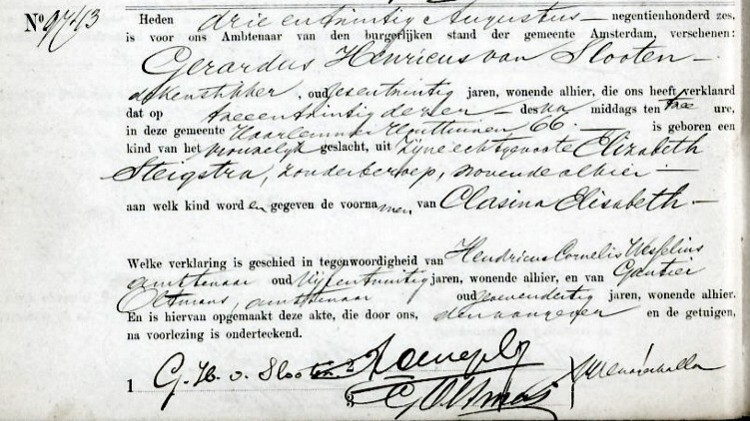 No 9743
Heden drie en twintig Augustus negentienhonderd zes,
is voor ons Ambtenaar van den burgerlijken stand der gemeente Amsterdam, verschenen:
Gerardus Henricus van Slooten
, oud zesentwintig jaren, wonende alhier, die ons heeft verklaard
dat op tweeentwintig dezer des na middags ten twee ure,
in deze gemeente Haarlemmer Houttuinen 66 is geboren een
kind van het vrouwelijk geslacht, uit zijne echtgenoote Elizabeth
Steigstra, zonder beroep, wonende alhier
aan welk kind word en gegeven de voorna men, van Clasina Elisabeth
Welke verklaring is geschied in tegenwoordigheid van Hendricus Cornelis Wesselius
ambtenaar oud vijfentwintig jaren, wonende alhier, en van Gautier
Oltmans, ambtenaar oud jaren, wonende alhier.
En is hiervan opgemaakt deze akte, die door ons, den aangever en de getuigen,
na voorlezing is onderteekend.
1 G. H. v. Slooten
G Oltmans